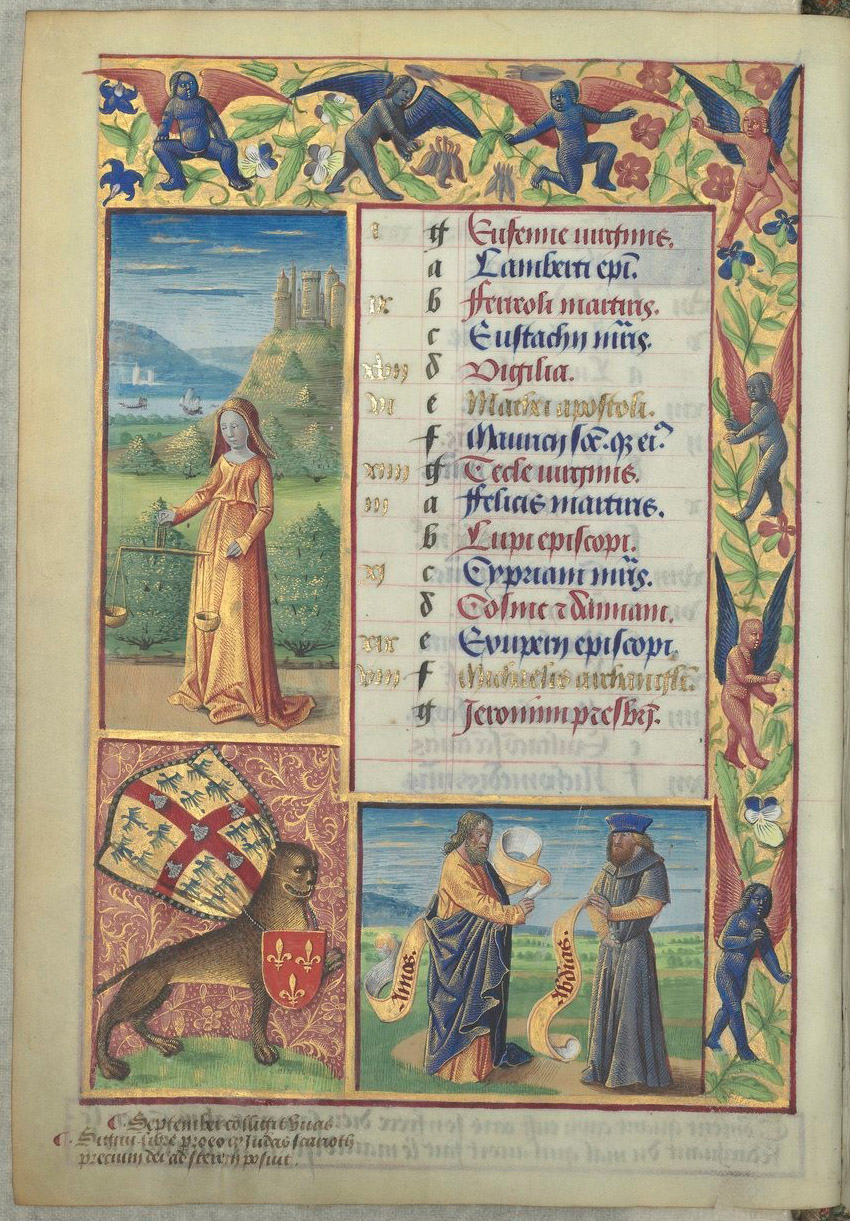 i g Eufemie virginis.
a Lamberti epi.
ix b Ferreoli martiris.
c Eustachii mris.
xvii d Vigilia.
vi e Mathei apostoli.
f Mauricii soc. qz ei9
xiiii g Tecle virginis.
iii a Felicis martiris.
b Lupi episcopi.
xi c Cypriani mris.
d Cosme ⁊ damiani.
xix e Souperii episcopi.
viii f Michaelis archangeli.
g Jeronimi presbri.
Amos.
Abdias.
¶. September colligit vuas
¶. Signū libre pro eo qz Judas scarioth
precium dei ad posuit.